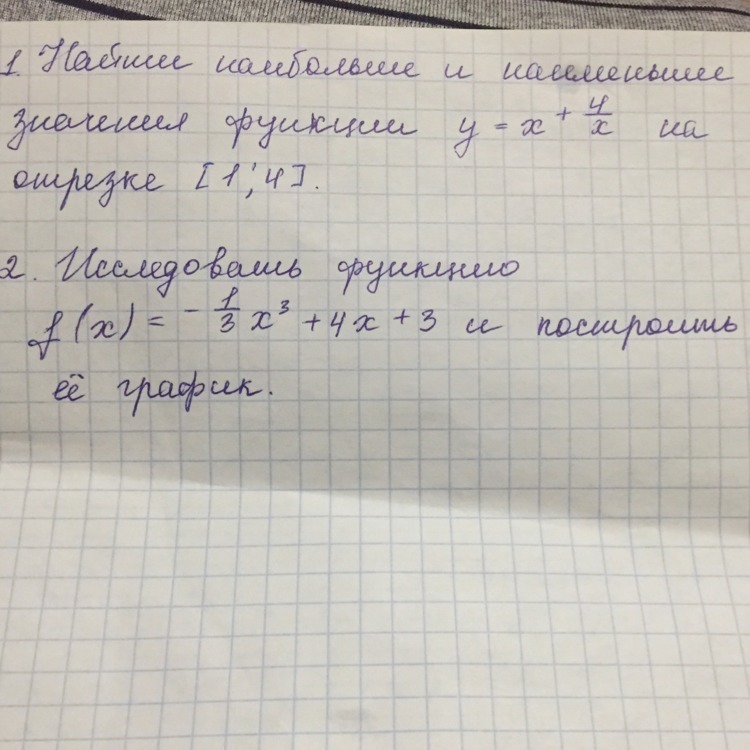 1. Найти наибольшие и наименьшие
значения функции y = x + 4/x на
отрезке [1; 4].
2. Исследовать функцию
f(x) = -1/3 x³ + 4x + 3 и построить
её график.